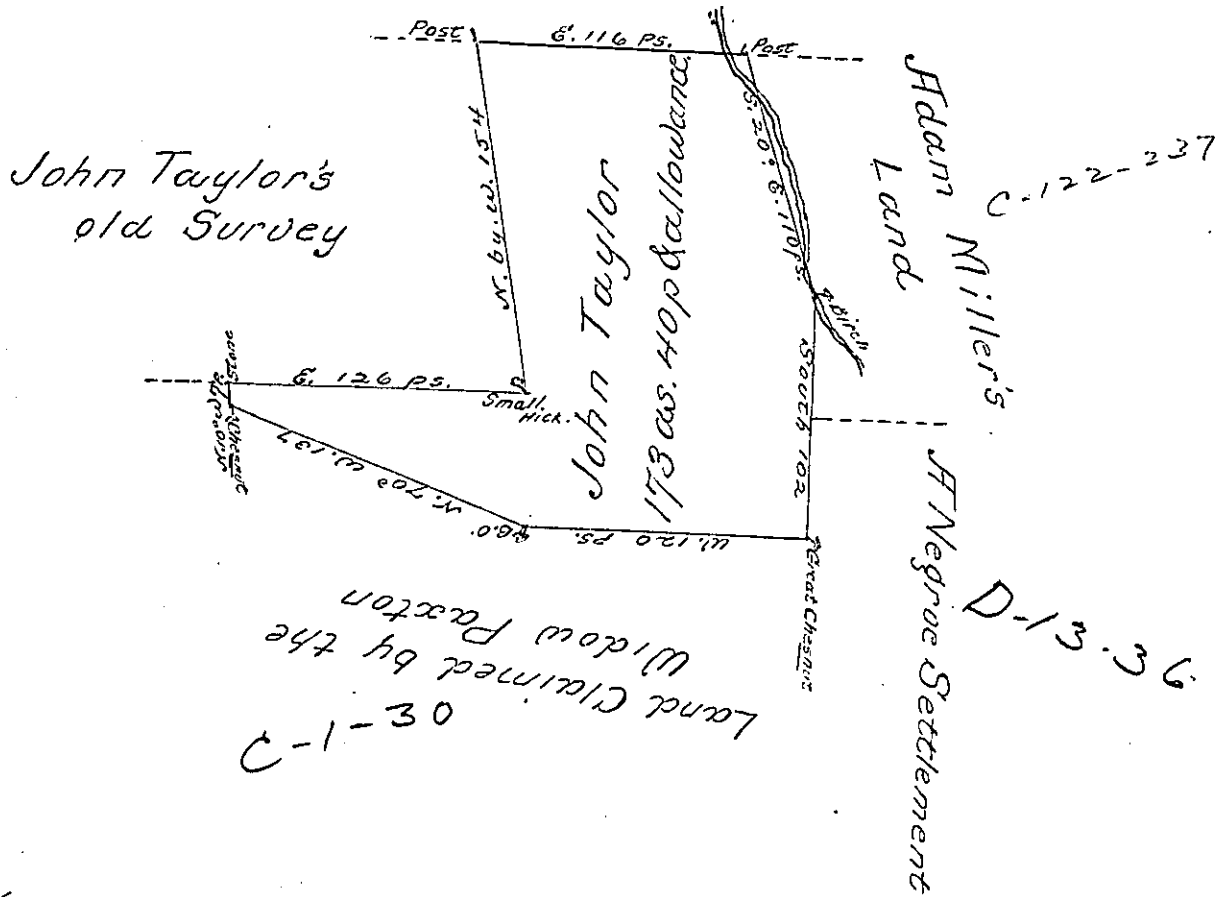 Post
E. 116 ps.
Post
John Taylor's
old Survey
N. by. W. 154
John Taylor
173 as. 40p & allowance
S. 20° E. 110 ps.
Adam Miller's
Land
C-122-237
Birch
South 102
E. 126 ps.
Small
Hick.
Stone
Chesnut
N. 70° W. 137
B.O.
W. 120 ps.
Great Chesnut
A Negroe Settlement
D-13-36
Land Claimed by the
Widow Paxton
C-1-30